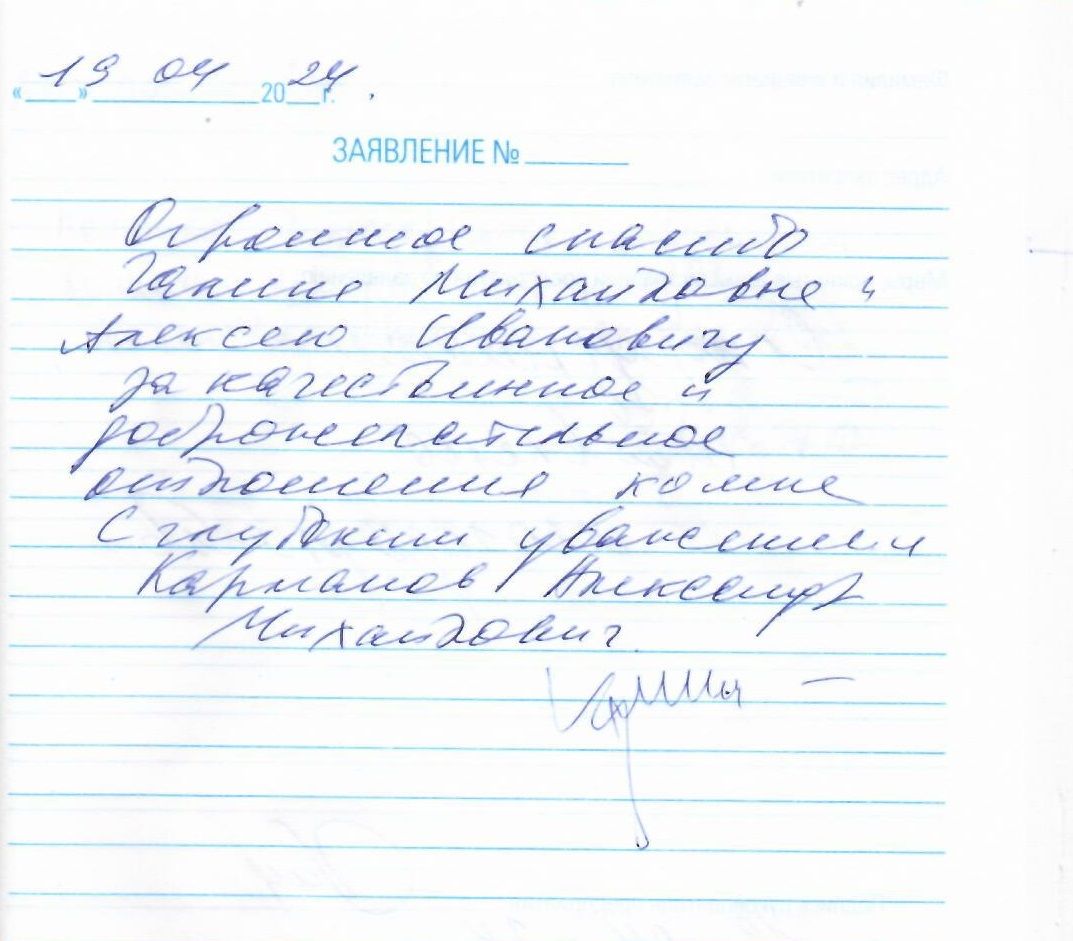 «19» 04 2024 г.
ЗАЯВЛЕНИЕ № ____
Огромное спасибо
Галине Михайловне и
Алексею Ивановичу
за качественное и
доброжелательное
отношения ко мне
С глубоким уважением
Карманов Александр
Михайлович